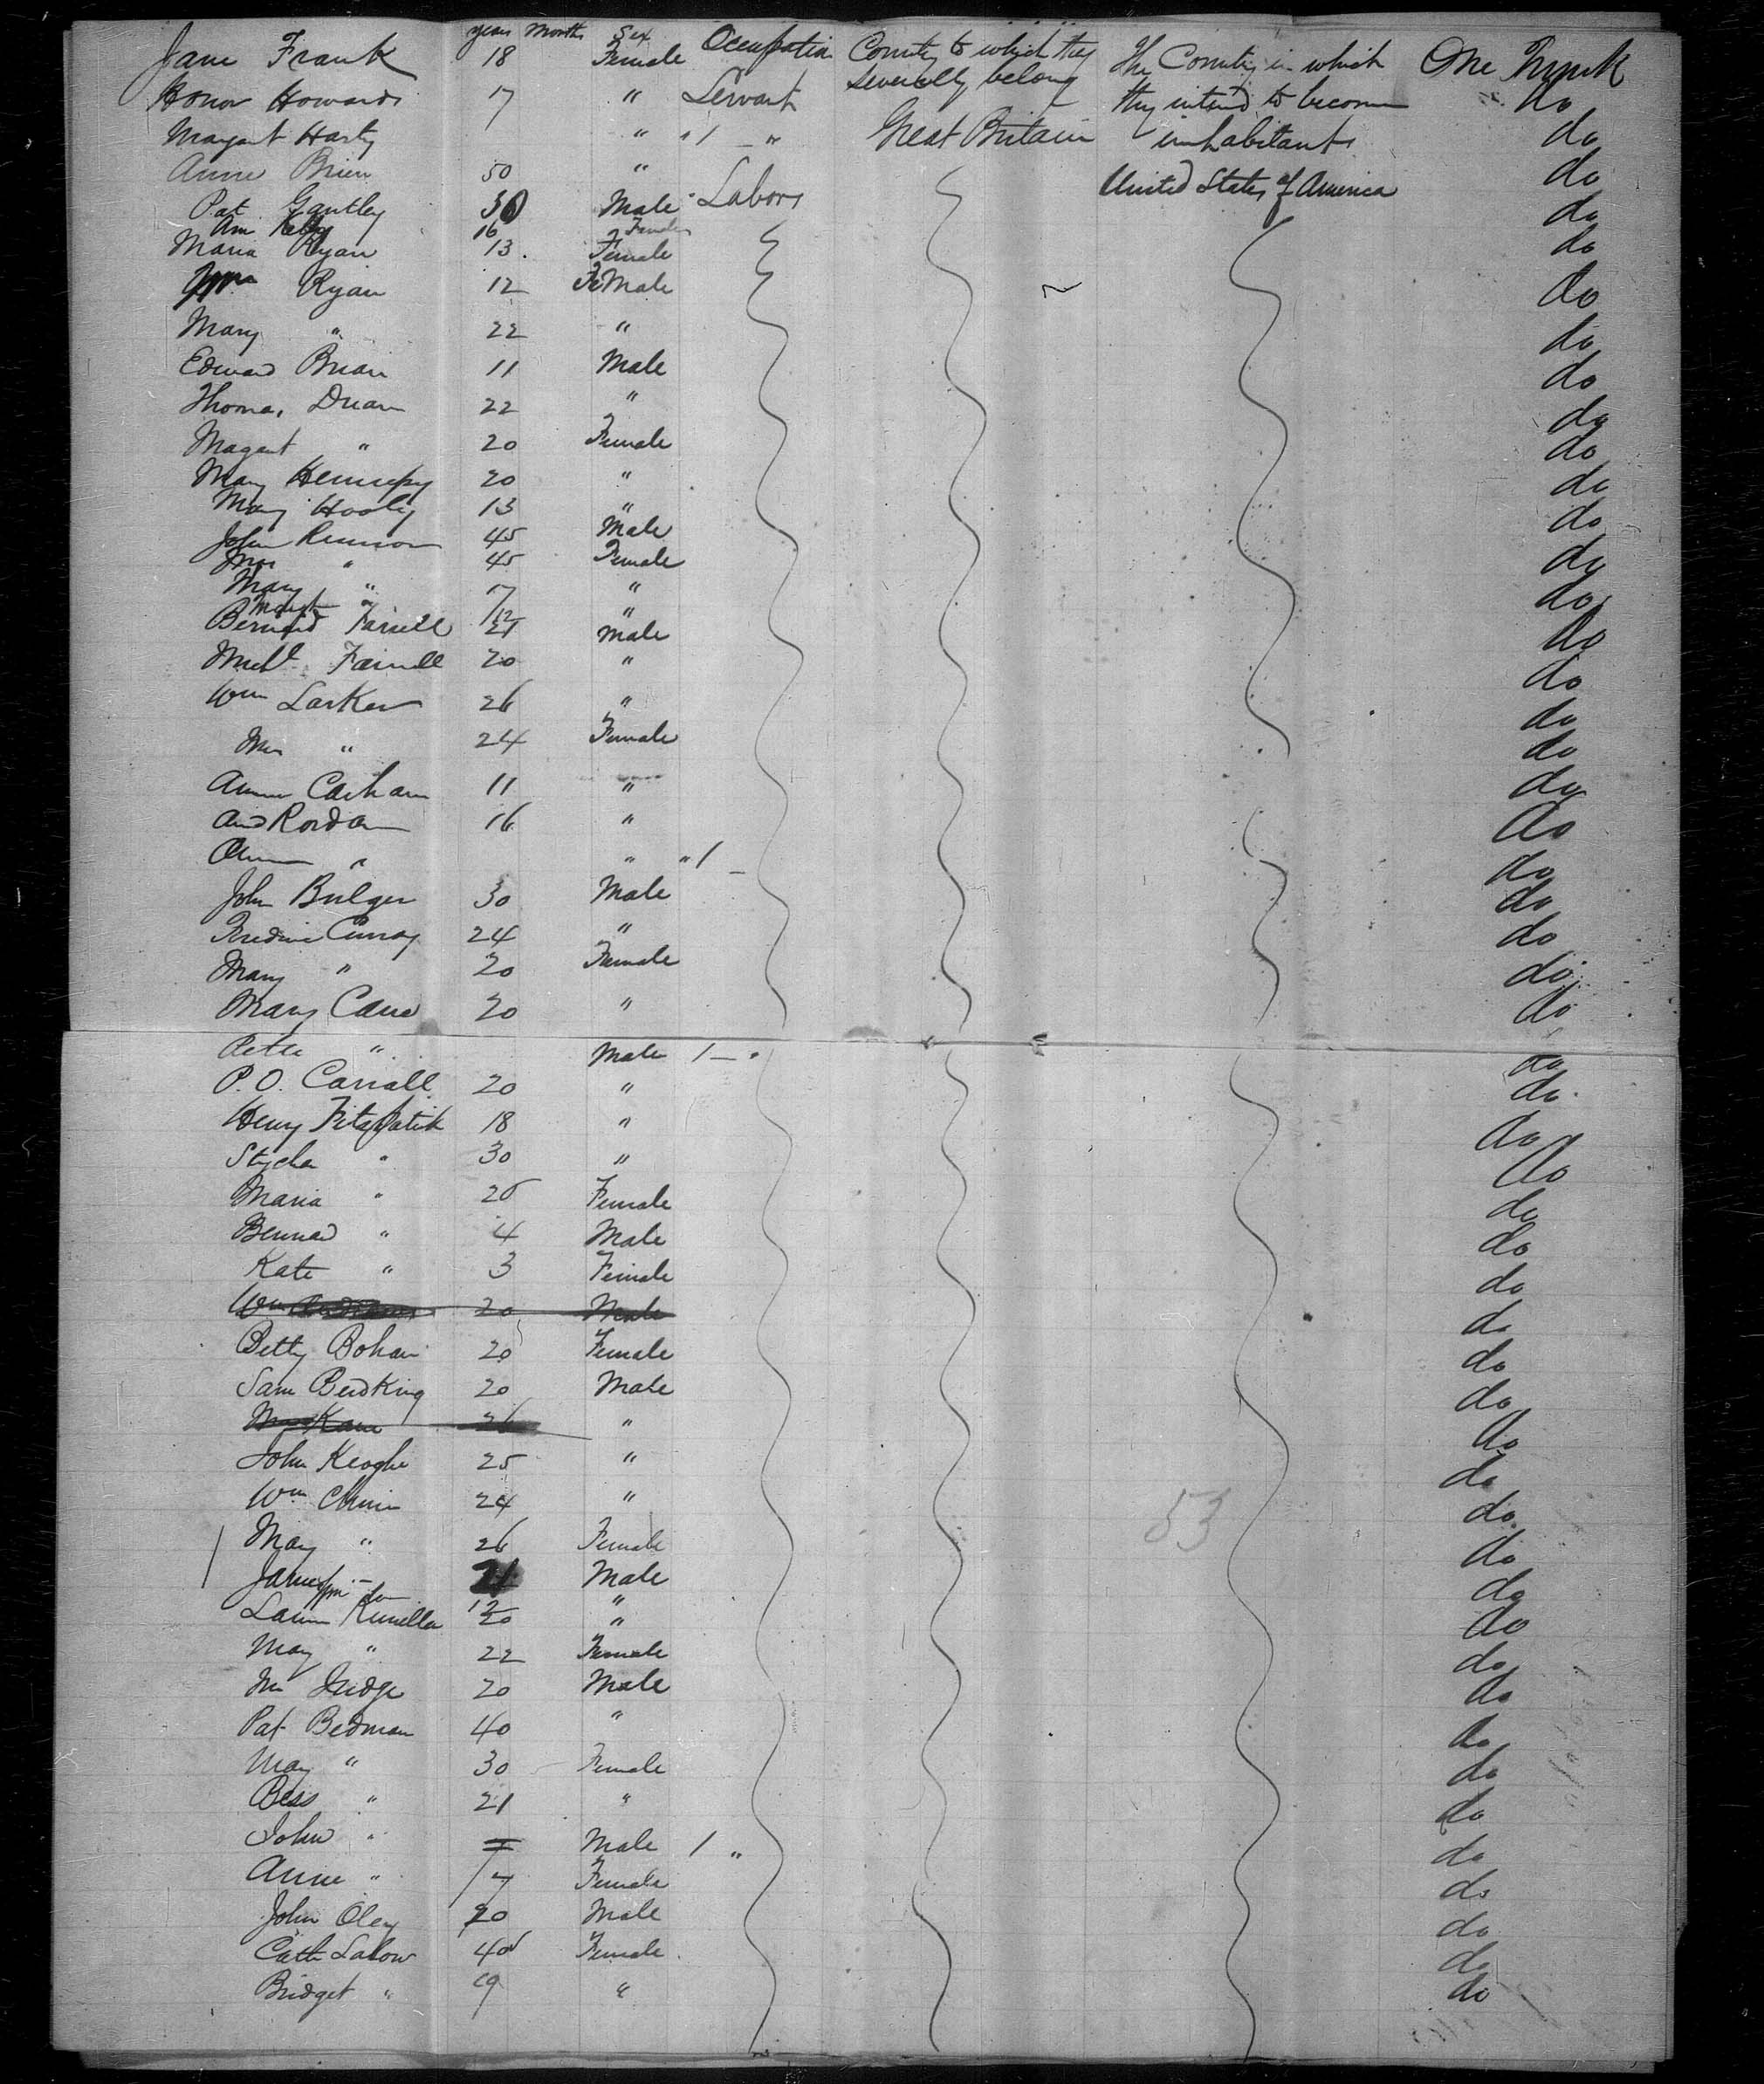 years Months Sex Occupation Country to which they severally belong The Country in which they intend to become inhabitants
Jane Frank 18 Female One Trunk
Honor Howards 17 " Servant do
Margart Harty " " 1 — " Great Britain do
Anne Brien 50 " United States of America do
Pat Gantley 30 Male Labors do
Ann Kelly 16 Female
Maria Ryan 13 Female do
Ryan 12 FeMale do
Mary " 22 " do
Edward Brian 11 Male do
Thomas Duan 22 " do
Magart " 20 Female do
Mary Hennepy 20 " do
Mary Hooly 13 " do
John Kennon 45 Male do
Mrs " 45 Female do
Mary " 7 " do
Margt " "
Bernard Farrell 21 Male do
Michl Farrell 20 " do
Wm Larken 26 " do
Mrs " 24 Female do
Anne Carham 11 " do
And Rordan 16 " do
" " " 1 — do
John Bulger 30 Male do
Curray 24 " do
Mary " 20 Female do
Mary Cane 20 " do
Peter " Male 1 — " do
P. O. Carrall 20 " do
Henry Fitzpatik 18 " do
Stephen " 30 " do
Maria " 25 Female do
Bernard " 4 Male do
Kate " 3 Female do
Wm 20 Male do
Betty Bohan 20 Female do
Sam Berdking 20 Male do
Kane 26 " do
John Keoghe 25 " do
Wm 24 " do
53
May " 26 Female do
James 21 Male do
12 "
Kunella 20 " do
May " 22 Female do
Judge 20 Male do
Pat Bedman 40 " do
May " 30 Female do
Bess " 21 " do
John " Male 1 " do
Anne " 7 Female do
John Oley 20 Male do
Cath Lalow 40 Female do
Bridget " 19 " do